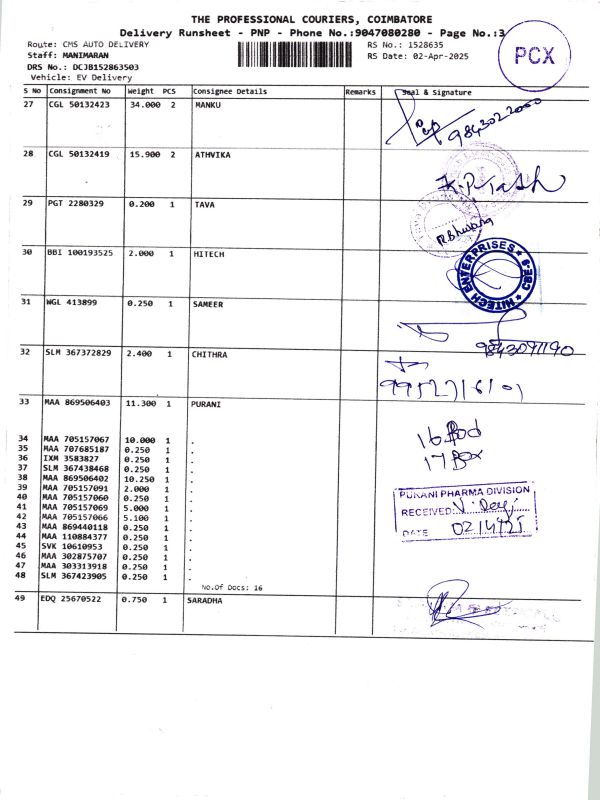 THE PROFESSIONAL COURIERS, COIMBATORE
Delivery Runsheet - PNP - Phone No.:9047080280 - Page No.:3
Route: CMS AUTO DELIVERY
RS No.: 1528635
Staff: MANIMARAN
RS Date: 02-Apr-2025
PCX
DRS No.: DCJB152863503
Vehicle: EV Delivery
S No Consignment No Weight PCS Consignee Details Remarks Seal & Signature
27 CGL 50132423 34.000 2 MANKU
28 CGL 50132419 15.900 2 ATHVIKA
29 PGT 2280329 0.200 1 TAVA
30 BBI 100193525 2.000 1 HITECH
HITECH ENTERPRISES
31 WGL 413899 0.250 1 SAMEER
9843091190
32 SLM 367372829 2.400 1 CHITHRA
33 MAA 869506403 11.300 1 PURANI
34 MAA 705157067 10.000 1 .
35 MAA 707685187 0.250 1 .
36 IXM 3583827 0.250 1 .
37 SLM 367438468 0.250 1 .
38 MAA 869506402 10.250 1 .
39 MAA 705157091 2.000 1 .
40 MAA 705157060 0.250 1 .
41 MAA 705157069 5.000 1 .
42 MAA 705157066 5.100 1 .
43 MAA 869440118 0.250 1 .
44 MAA 110884377 0.250 1 .
45 SVK 10610953 0.250 1 .
46 MAA 302875707 0.250 1 .
47 MAA 303313918 0.250 1 .
48 SLM 367423905 0.250 1 .
17 Box
PURANI PHARMA DIVISION
RECEIVED:
DATE 02/4/25
No.Of Docs: 16
49 EDQ 25670522 0.750 1 SARADHA